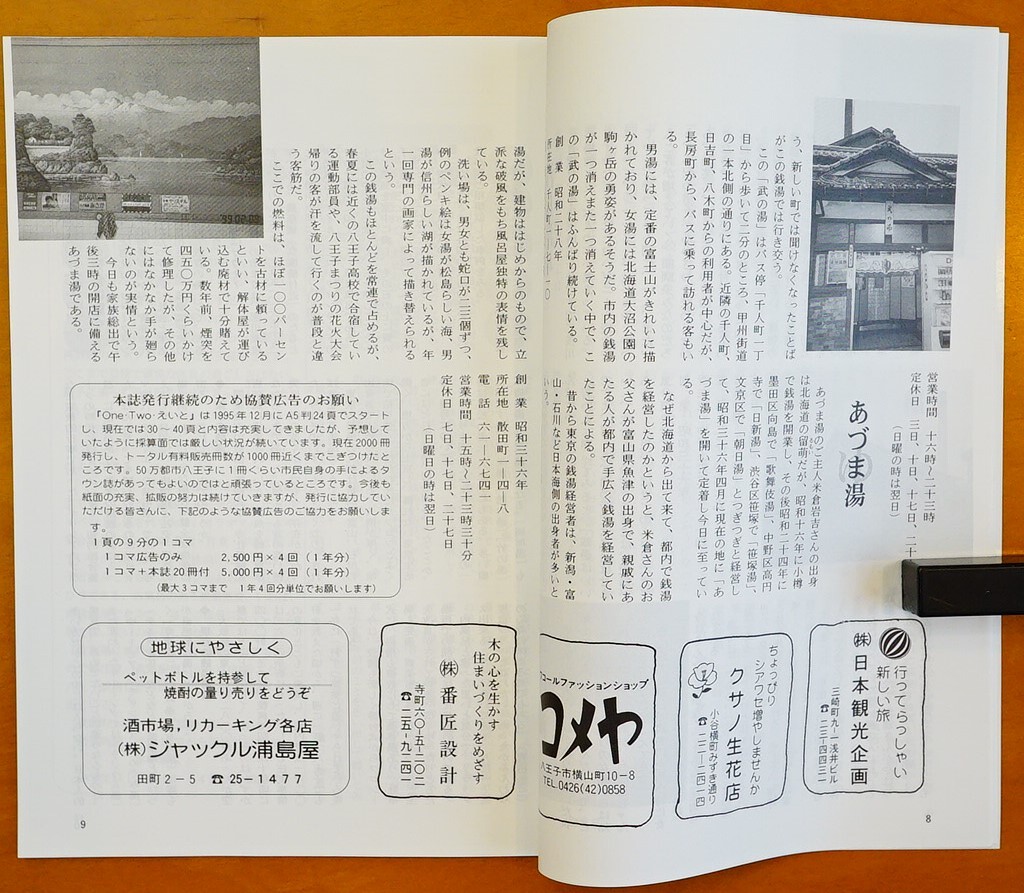 う、新しい町では聞けなくなったことば
がこの銭湯では行き交う。
この「武の湯」はバス停「千人町一丁
目」から歩いて二分のところ、甲州街道
の一本北側の通りにある。近隣の千人町、
日吉町、八木町からの利用者が中心だが、
長房町から、バスに乗って訪れる客もい
る。
男湯には、定番の富士山がきれいに描
かれており、女湯には北海道大沼公園の
駒ヶ岳の勇姿があるそうだ。市内の銭湯
が一つ消えまた一つ消えていく中で、こ
の「武の湯」はふんばり続けている。
創業 昭和二十八年
所在地 千人町一ー七ー一〇
営業時間 十六時〜二十三時
定休日 三日、十日、十七日、二十
(日曜日の時は翌日)
あづま湯
あづま湯のご主人米倉岩吉さんの出身
は北海道の留萌だが、昭和十六年に小樽
で銭湯を開業し、その後昭和二十四年に
墨田区向島で「歌舞伎湯」、中野区高円
寺で「日新湯」、渋谷区笹塚で「笹塚湯」、
文京区で「朝日湯」とつぎつぎと経営し
て、昭和三十六年四月に現在の地に「あ
づま湯」を開いて定着し今日に至ってい
る。
なぜ北海道から出て来て、都内で銭湯
を経営したのかというと、米倉さんのお
父さんが富山県魚津の出身で、親戚にあ
たる人が都内で手広く銭湯を経営してい
たことによる。
昔から東京の銭湯経営者は、新潟・富
山・石川など日本海側の出身者が多いと
いう。
行ってらっしゃい
新しい旅
(株)日本観光企画
三崎町九-一浅井ビル
☎二三-四四三一
ちょっぴり
シアワセ増やしませんか
クサノ生花店
小谷横町みずき通り
☎二二-二四一四
コールファッションショップ
コメヤ
八王子市横山町10-8
TEL.0426(42)0858
8
湯だが、建物ははじめからのもので、立
派な破風をもち風呂屋独特の表情を残し
ている。
洗い場は、男女とも蛇口が二三個ずつ、
例のペンキ絵は女湯が松島らしい海、男
湯が信州らしい湖が描かれているが、年
一回専門の画家によって描き替えられる
という。
この銭湯もほとんどを常連で占めるが、
春夏には近くの八王子高校で合宿してい
る運動部員や、八王子まつりの花火大会
帰りの客が汗を流して行くのが普段と違
う客筋だ。
ここでの燃料は、ほぼ一〇〇パーセン
トを古材に頼っている
といい、解体屋が運び
込む廃材で十分賄えて
いる。数年前、煙突を
四五〇万円くらいかけ
て修理したが、その他
にはなかなか手が廻ら
ないのが実情という。
今日も家族総出で午
後三時の開店に備える
あづま湯である。
創業 昭和三十六年
所在地 散田町一ー四ー八
電話 六一ー六七四一
営業時間 十五時〜二十三時三十分
定休日 七日、十七日、二十七日
(日曜日の時は翌日)
本誌発行継続のため協賛広告のお願い
「One・Two・えいと」は1995年12月にA5判24頁でスタート
し、現在では30〜40頁と内容は充実してきましたが、予想して
いたように採算面では厳しい状況が続いています。現在2000冊
発行し、トータル有料販売冊数が1000冊近くまでこぎつけたと
ころです。50万都市八王子に1冊くらい市民自身の手によるタ
ウン誌があってもよいのではと頑張っているところです。今後も
紙面の充実、拡販の努力は続けていきますが、発行に協力してい
ただける皆さんに、下記のような協賛広告のご協力をお願いしま
す。
1頁の9分の1コマ
1コマ広告のみ 2,500円×4回(1年分)
1コマ+本誌20冊付 5,000円×4回(1年分)
(最大3コマまで 1年4回分単位でお願いします)
木の心を生かす
住まいづくりをめざす
(株)番匠設計
寺町六〇-五-二〇一
☎二五-九二四一
地球にやさしく
ペットボトルを持参して
焼酎の量り売りをどうぞ
酒市場,リカーキング各店
(株)ジャックル浦島屋
田町2-5 ☎25-1477
9